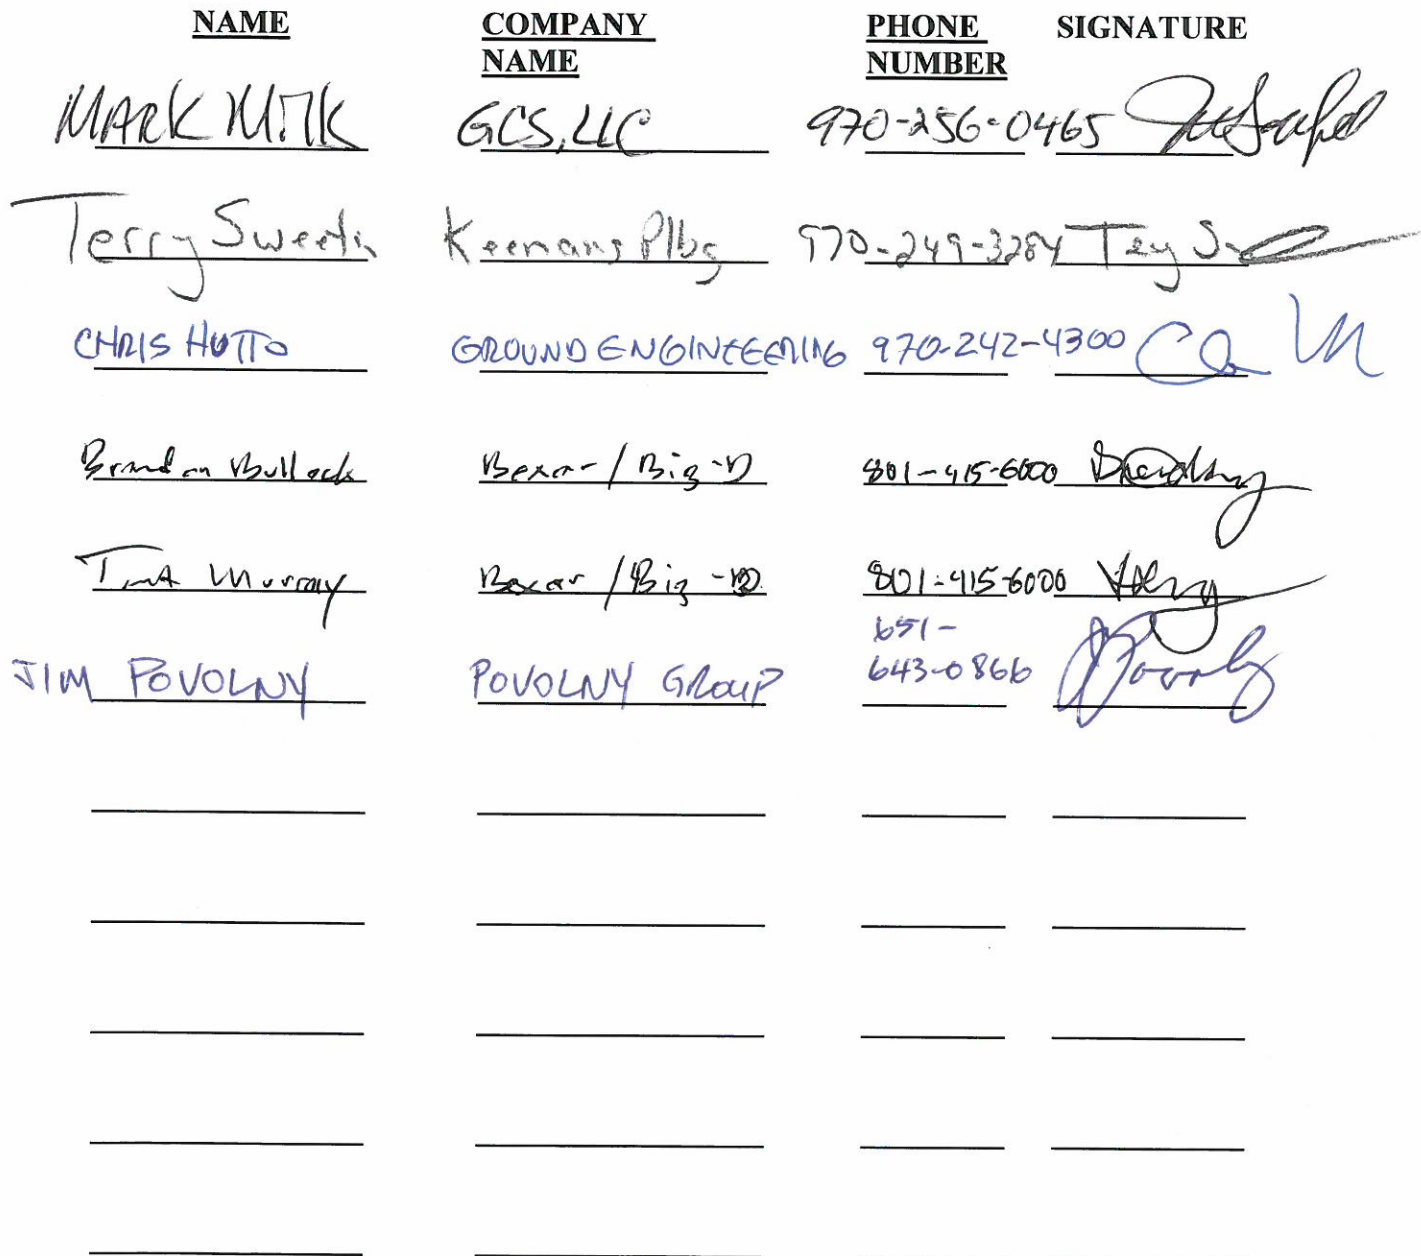 NAME COMPANY NAME PHONE NUMBER SIGNATURE
MARK MITK GCS, LLC 970-256-0465
Terry Sweetin Keenans Plbg 970-249-3284
CHRIS HUTTO GROUND ENGINEERING 970-242-4300
Brandon Bullock Bexar / Big-D 801-415-6000
Murray Bexar / Big-D 801-415-6000
JIM POVOLNY POVOLNY GROUP 651-643-0866